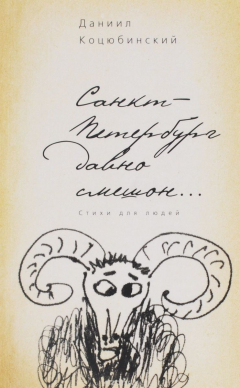 Даниил
Коцюбинский
Санкт-
Петербург
давно
смешон...
Стихи для людей